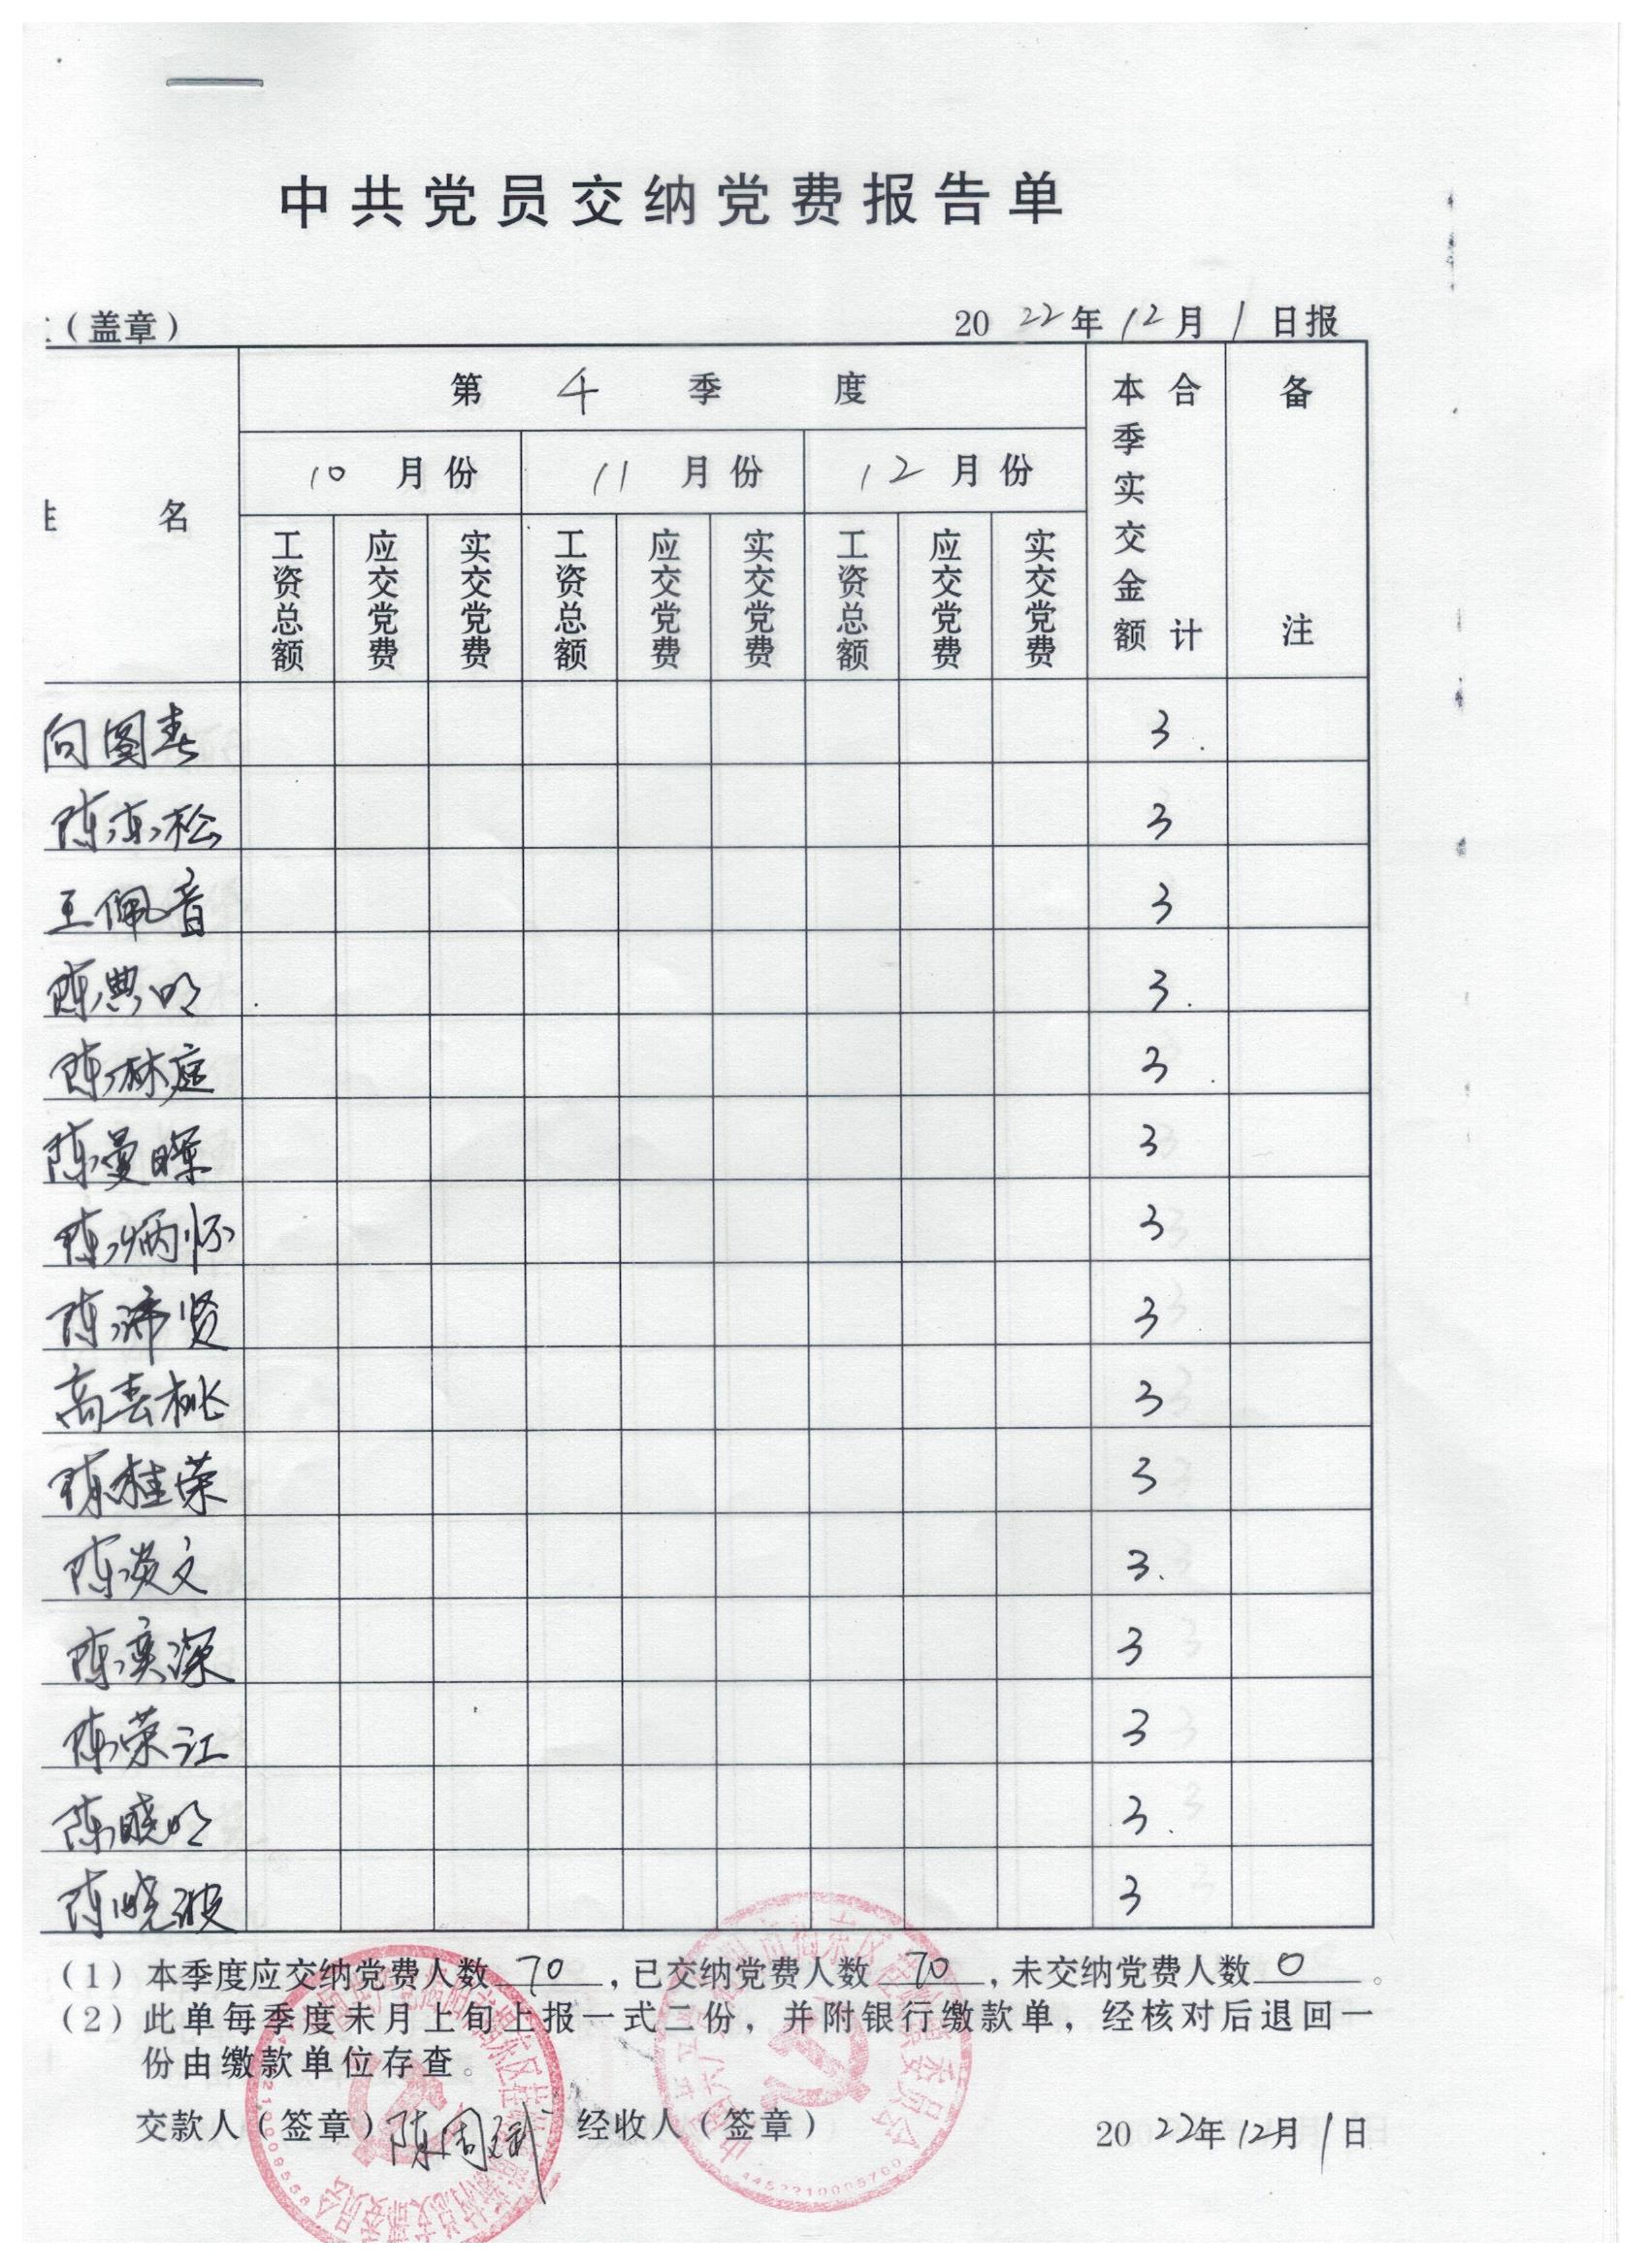 中共党员交纳党费报告单
（盖章） 2022年12月1日报
名 第4季度 本季实交金额合计 备注
10月份 11月份 12月份
工资总额 应交党费 实交党费 工资总额 应交党费 实交党费 工资总额 应交党费 实交党费
向图春 3
陈松 3
王佩音 3
陈典明 3
陈林庭 3
陈曼晖 3
陈炳怀 3
陈沛贤 3
高春桃 3
陈桂荣 3
陈汉文 3
陈奕深 3
陈荣江 3
陈晓明 3
陈晓波 3
（1）本季度应交纳党费人数70，已交纳党费人数70，未交纳党费人数0。
（2）此单每季度末月上旬上报一式二份，并附银行缴款单，经核对后退回一
份由缴款单位存查。
交款人（签章）陈周 经收人（签章） 2022年12月1日